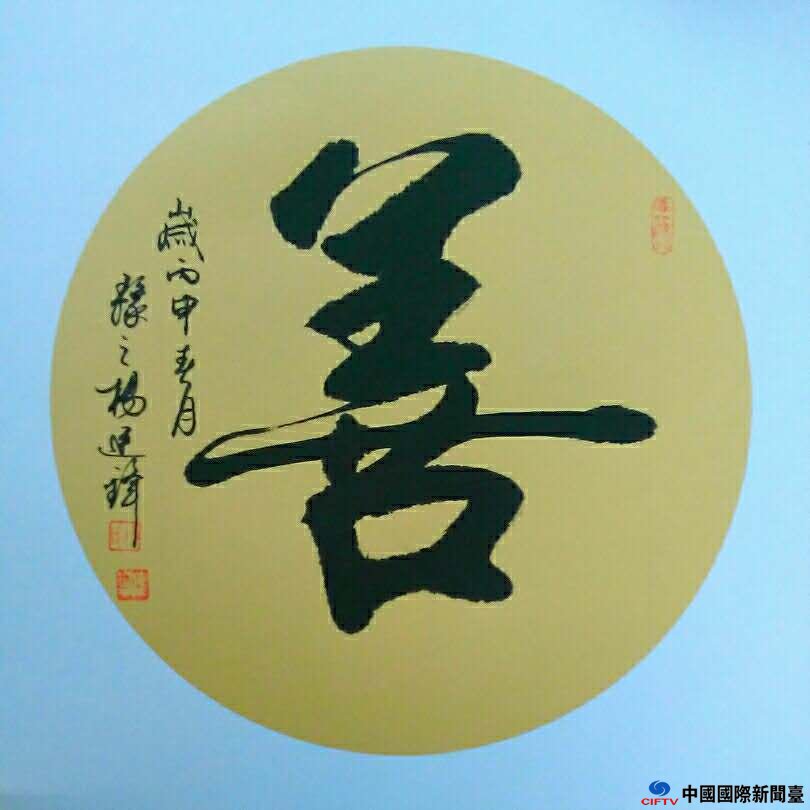 善
歲丙申春月
楊建璋
CIFTV 中國國際新聞臺